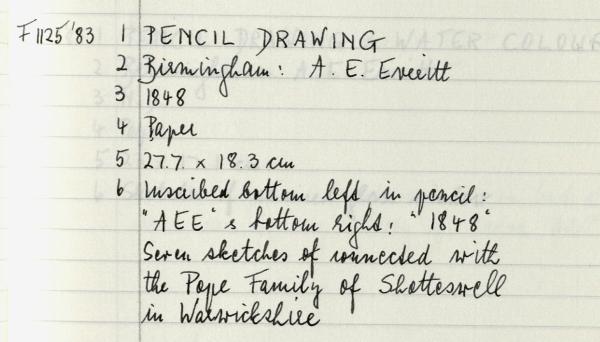 F1125'83 1 PENCIL DRAWING
2 Birmingham: A. E. Everitt
3 1848
4 Paper
5 27.7. x 18.3 cm
6 Inscribed bottom left in pencil:
"AEE" & bottom right: "1848"
Seven sketches of connected with
the Pope Family of Shotteswell
in Warwickshire